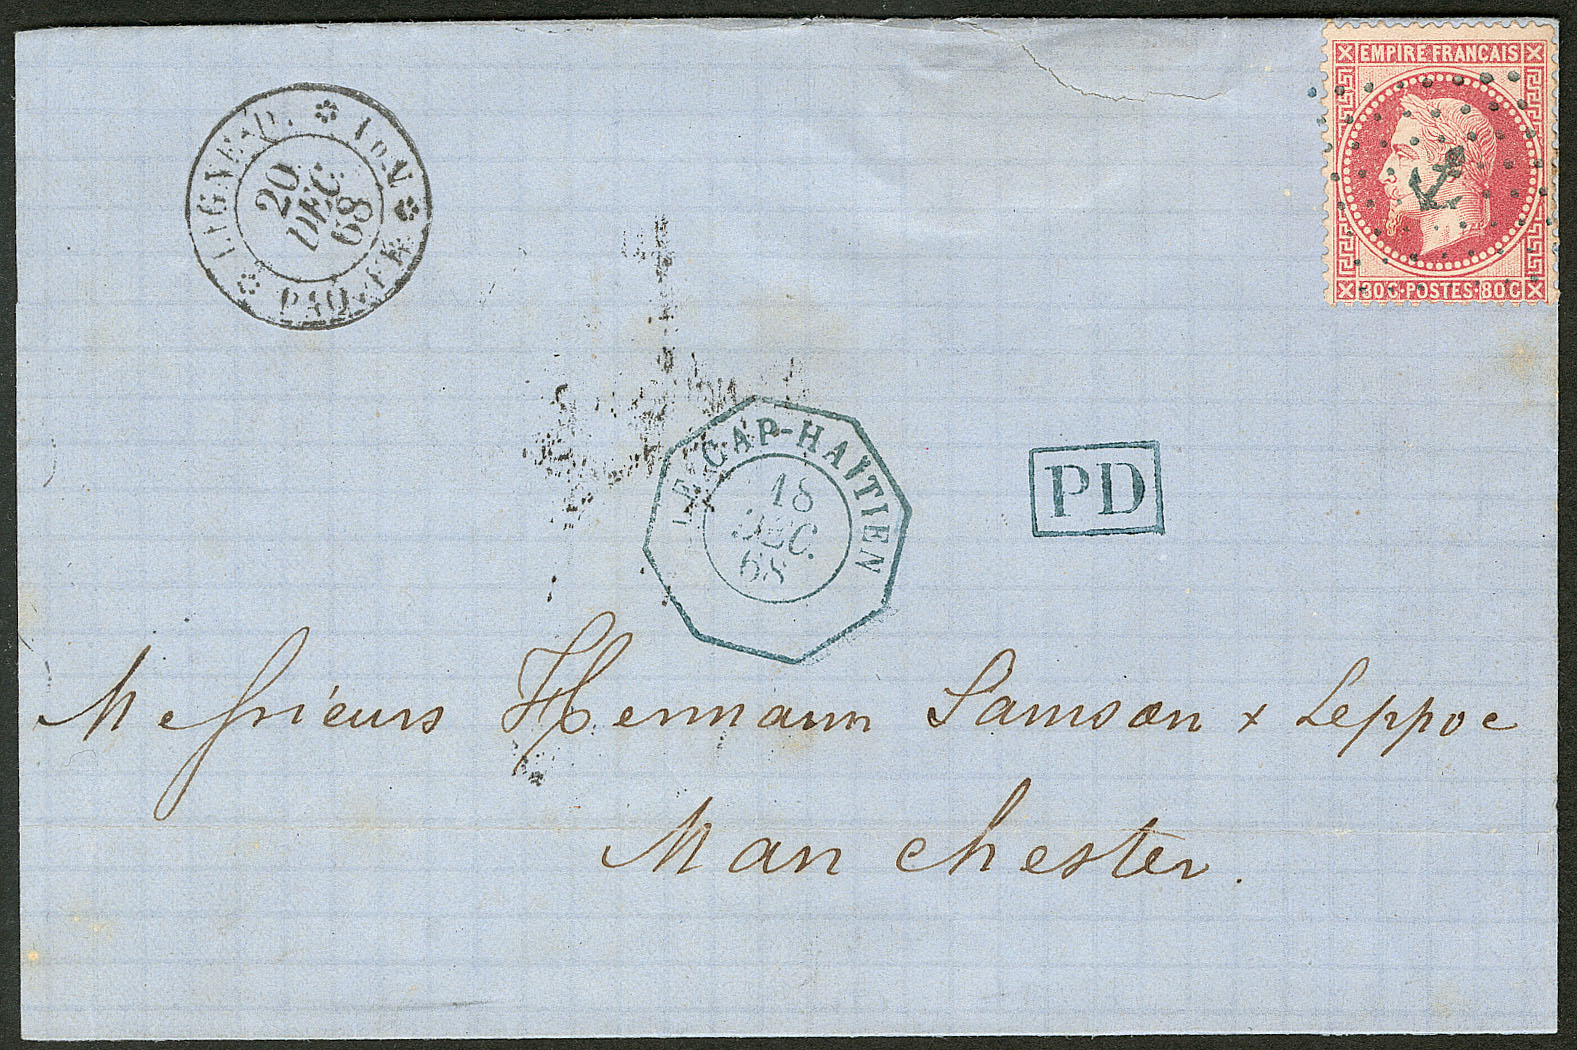 EMPIRE FRANÇAIS
80C·POSTES·80C
LIGNE D.
PAQ. FR.
20
DEC.
68
LE CAP-HAITIEN
18
DEC.
68
PD
Messrieurs Hermann Samson + Leppoc
Manchester.